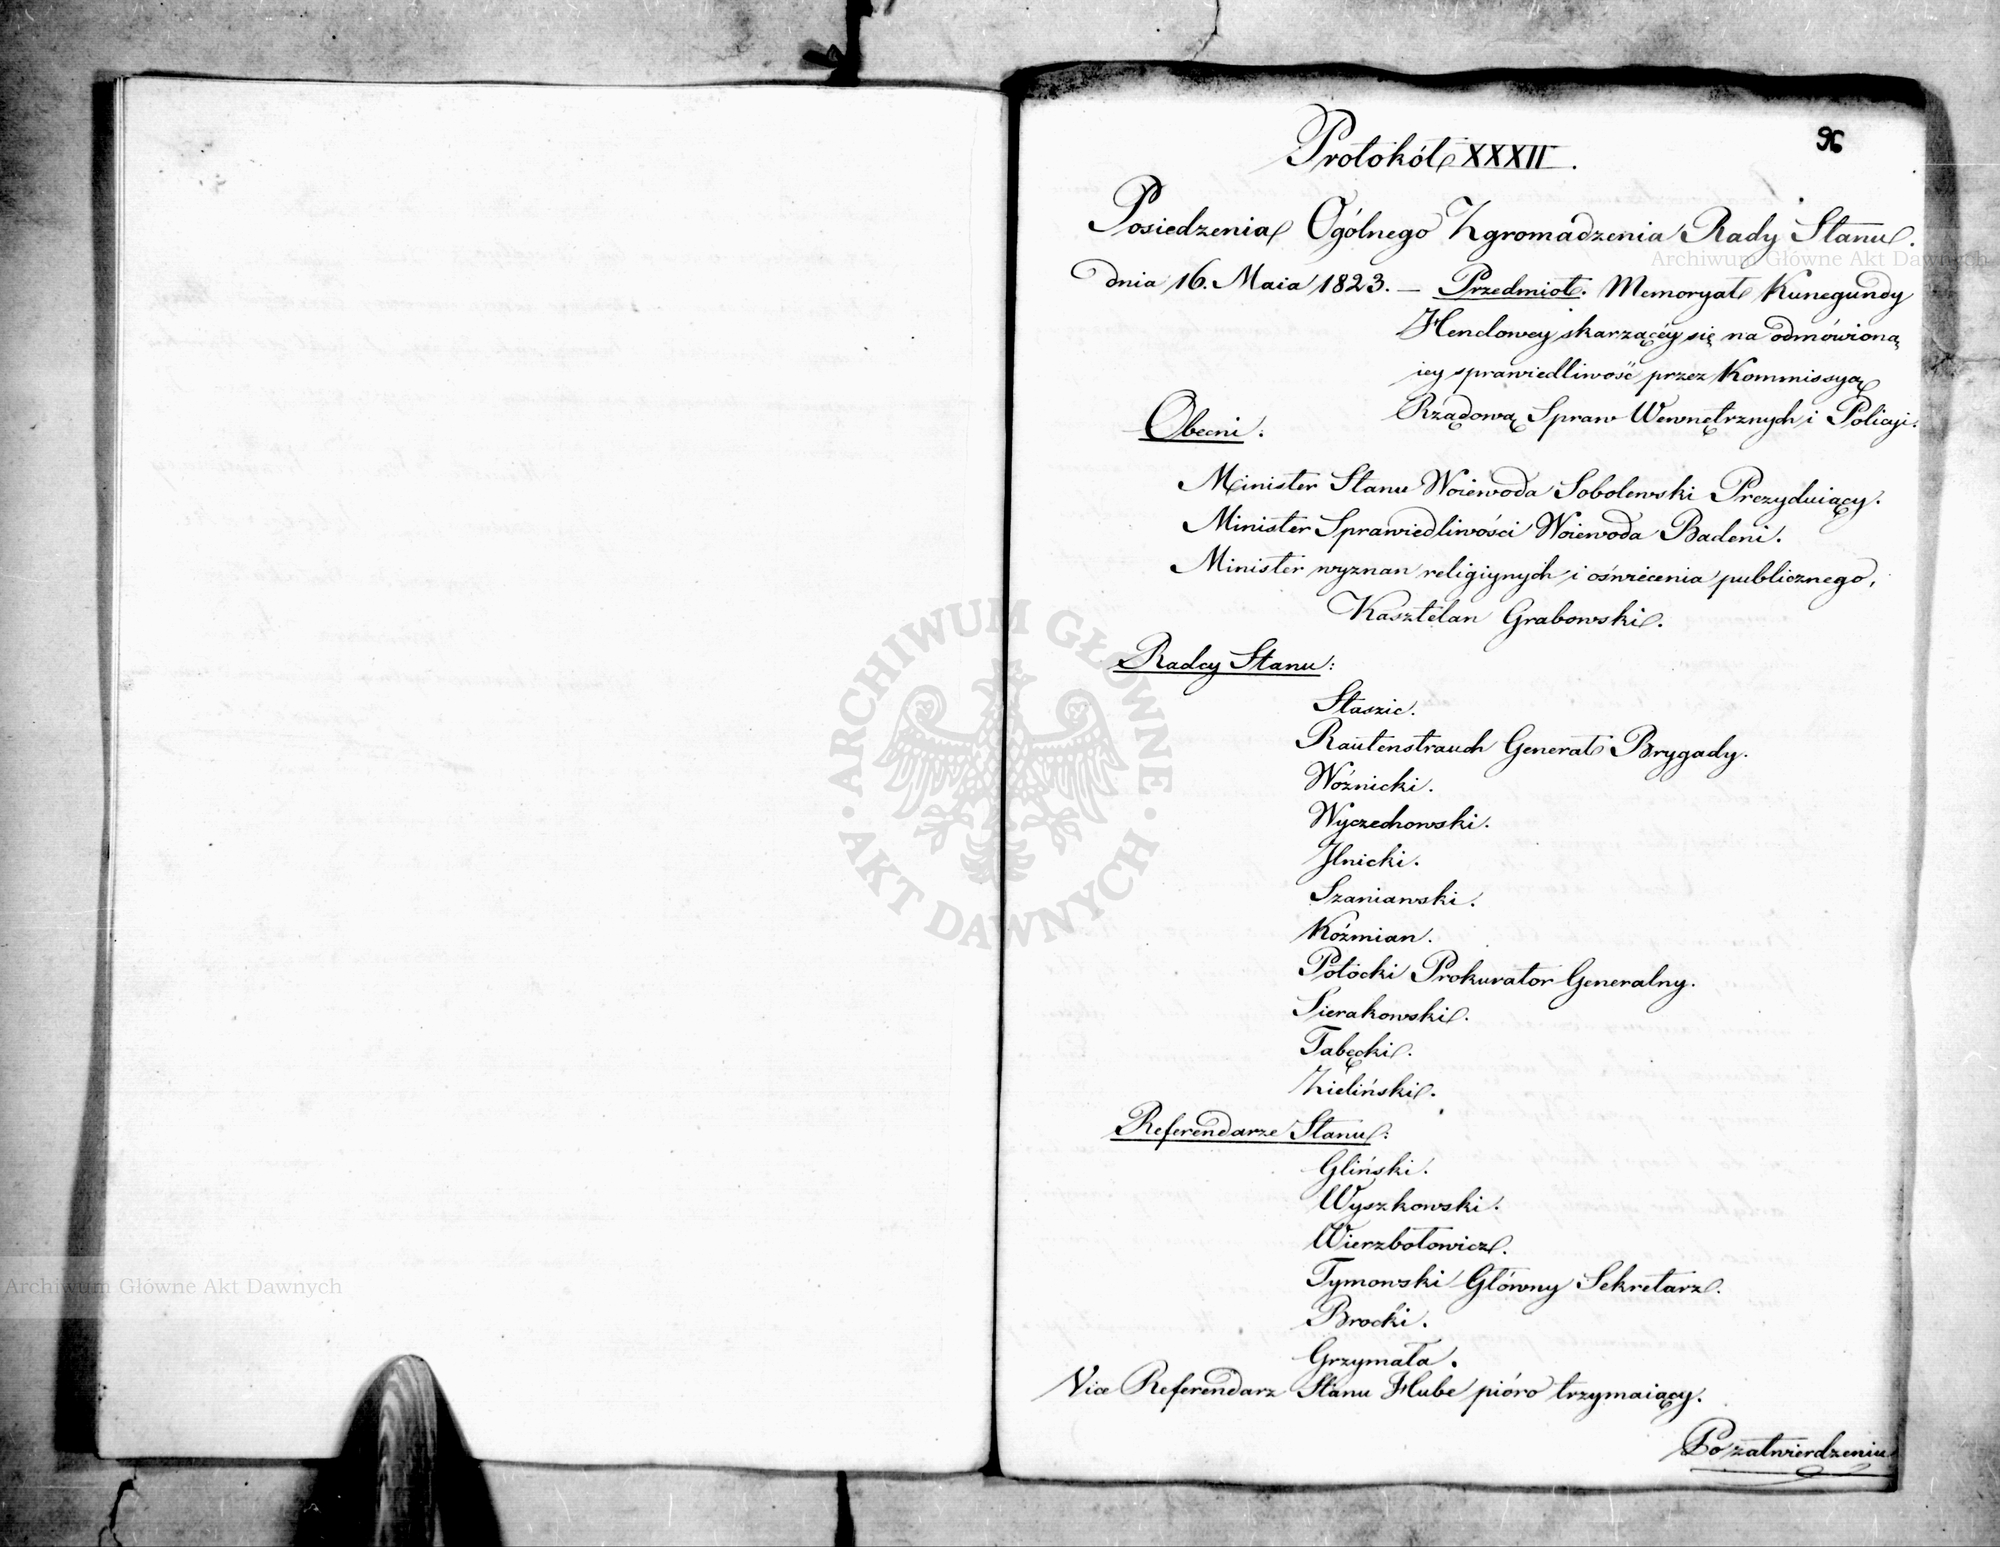 96
Protokół XXXII.
Posiedzenia Ogólnego Zgromadzenia Rady Stanu.
dnia 16. Maia 1823. — Przedmiot. Memoryał Kunegundy
Henclowey skarzącéy się na odmówioną
iey sprawiedliwość przez Kommissyą
Rządową Spraw Wewnętrznych i Policyi.
Obecni:
Minister Stanu Woiewoda Sobolewski Prezyduiący.
Minister Sprawiedliwości Woiewoda Badeni.
Minister wyznan religiynych i oświecenia publicznego,
Kasztelan Grabowski.
Radcy Stanu:
Staszic.
Rautenstrauch Generał Brygady.
Woźnicki.
Wyczechowski.
Ilnicki.
Szaniawski.
Koźmian.
Potocki Prokurator Generalny.
Sierakowski.
Tabęcki.
Zieliński.
Referendarze Stanu:
Gliński.
Wyszkowski.
Wierzbołowicz.
Tymowski Główny Sekretarz.
Brocki.
Grzymała.
Vice Referendarz Stanu Hube pióro trzymaiący.
Po zatwierdzeniu
ARCHIWUM GŁÓWNE
AKT DAWNYCH
Archiwum Główne Akt Dawnych
Archiwum Główne Akt Dawnych